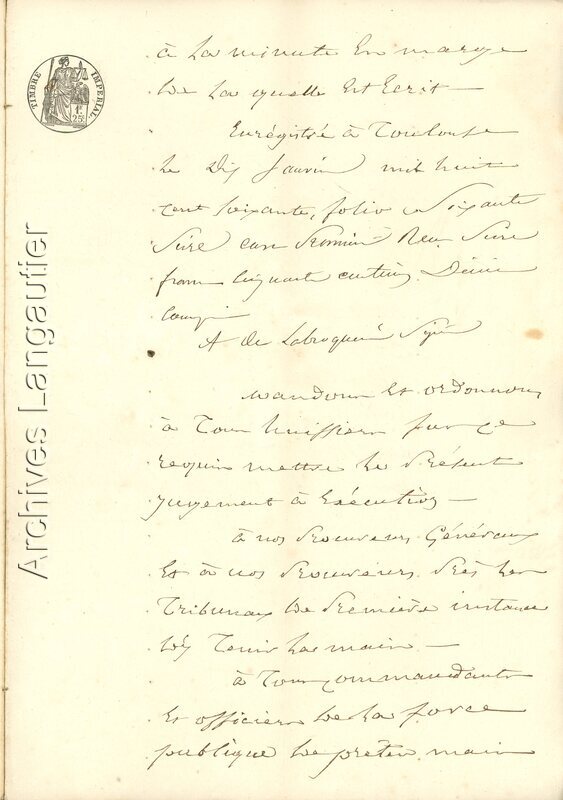 TIMBRE IMPERIAL
1F
25c
Archives Langautier
à la minute En marge
de la quelle Est Ecrit —
Enrégistré à Toulouse
le Dix Janvier mil huit
cent soixante, folio Soixante
Seize case Première Reçu Seize
francs Cinquante centimes Décime
compris
A de Labroquère Signé
Mandons Et ordonnons
à Tous huissiers sur ce
requis mettre le Présent
jugement à Exécution —
à nos Procureurs Généraux
Et à nos Procureurs Près les
Tribunaux de Première instance
d'y Tenir la main —
à Tous commandants
Et officiers de la force
publique de prêter main